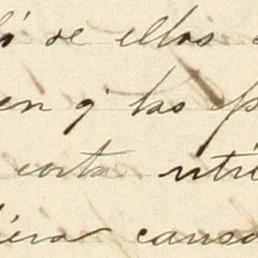 ó de ellos
en q' las
corta
iera causa